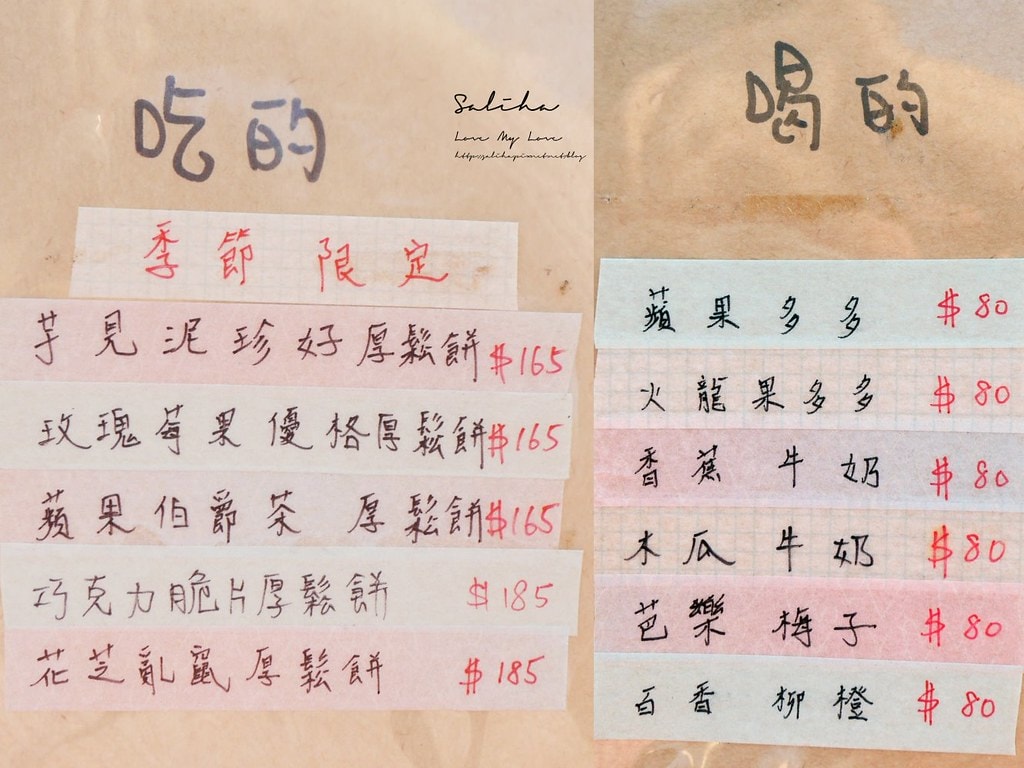 吃的
Saliha
Love My Love
http://saliha.pixnet.net/blog
季節限定
芋見泥珍好厚鬆餅 $165
玫瑰莓果優格厚鬆餅 $165
蘋果伯爵茶 厚鬆餅 $165
巧克力脆片厚鬆餅 $185
花芝亂竄厚鬆餅 $185
喝的
蘋果多多 $80
火龍果多多 $80
香蕉 牛奶 $80
木瓜 牛奶 $80
芭樂 梅子 $80
百香 柳橙 $80